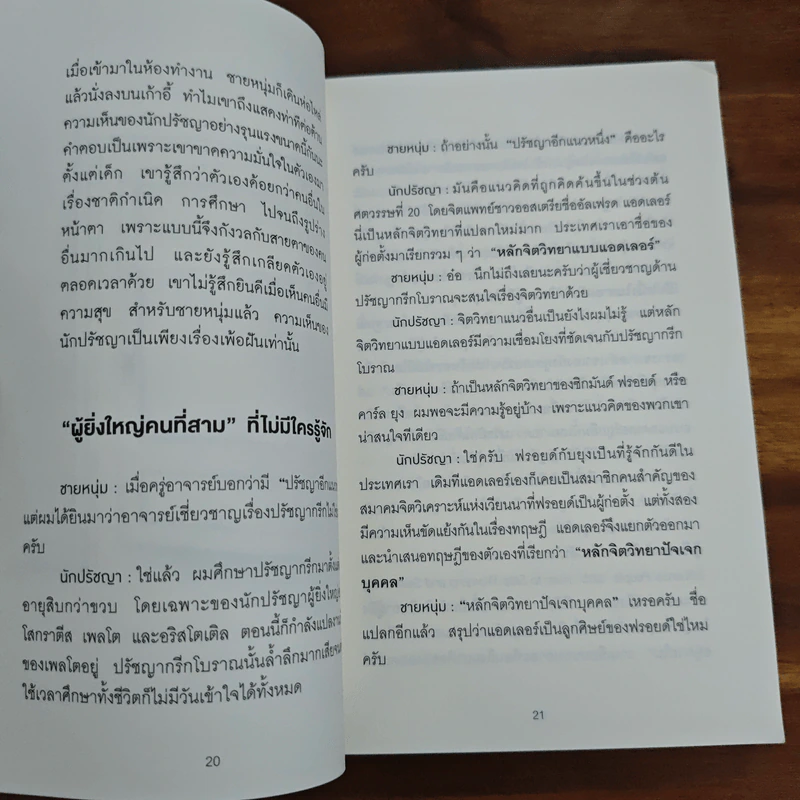 เมื่อเข้ามาในห้องทำงาน ชายหนุ่มก็เดินห่อไหล่
แล้วนั่งลงบนเก้าอี้ ทำไมเขาถึงแสดงท่าทีต่อต้าน
ความเห็นของนักปรัชญาอย่างรุนแรงขนาดนี้กันนะ
คำตอบเป็นเพราะเขาขาดความมั่นใจในตัวเองมา
ตั้งแต่เด็ก เขารู้สึกว่าตัวเองด้อยกว่าคนอื่นใน
เรื่องชาติกำเนิด การศึกษา ไปจนถึงรูปร่าง
หน้าตา เพราะแบบนี้จึงกังวลกับสายตาของคน
อื่นมากเกินไป และยังรู้สึกเกลียดตัวเองอยู่
ตลอดเวลาด้วย เขาไม่รู้สึกยินดีเมื่อเห็นคนอื่นมี
ความสุข สำหรับชายหนุ่มแล้ว ความเห็นของ
นักปรัชญาเป็นเพียงเรื่องเพ้อฝันเท่านั้น
“ผู้ยิ่งใหญ่คนที่สาม” ที่ไม่มีใครรู้จัก
ชายหนุ่ม : เมื่อครู่อาจารย์บอกว่ามี “ปรัชญาอีกแนว
แต่ผมได้ยินมาว่าอาจารย์เชี่ยวชาญเรื่องปรัชญากรีก
ครับ
นักปรัชญา : ใช่แล้ว ผมศึกษาปรัชญากรีกมาตั้งแต่
อายุสิบกว่าขวบ โดยเฉพาะของนักปรัชญาผู้ยิ่งใหญ่
โสกราตีส เพลโต และอริสโตเติล ตอนนี้ก็กำลังแปลงาน
ของเพลโตอยู่ ปรัชญากรีกโบราณนั้นล้ำลึกมากเสียจน
ใช้เวลาศึกษาทั้งชีวิตก็ไม่มีวันเข้าใจได้ทั้งหมด
20
ชายหนุ่ม : ถ้าอย่างนั้น “ปรัชญาอีกแนวหนึ่ง” คืออะไร
ครับ
นักปรัชญา : มันคือแนวคิดที่ถูกคิดค้นขึ้นในช่วงต้น
ศตวรรษที่ 20 โดยจิตแพทย์ชาวออสเตรียชื่ออัลเฟรด แอดเลอร์
นี่เป็นหลักจิตวิทยาที่แปลกใหม่มาก ประเทศเราเอาชื่อของ
ผู้ก่อตั้งมาเรียกรวม ๆ ว่า “หลักจิตวิทยาแบบแอดเลอร์”
ชายหนุ่ม : อ๋อ นึกไม่ถึงเลยนะครับว่าผู้เชี่ยวชาญด้าน
ปรัชญากรีกโบราณจะสนใจเรื่องจิตวิทยาด้วย
นักปรัชญา : จิตวิทยาแนวอื่นเป็นยังไงผมไม่รู้ แต่หลัก
จิตวิทยาแบบแอดเลอร์มีความเชื่อมโยงที่ชัดเจนกับปรัชญากรีก
โบราณ
ชายหนุ่ม : ถ้าเป็นหลักจิตวิทยาของซิกมันด์ ฟรอยด์ หรือ
คาร์ล ยุง ผมพอจะมีความรู้อยู่บ้าง เพราะแนวคิดของพวกเขา
น่าสนใจทีเดียว
นักปรัชญา : ใช่ครับ ฟรอยด์กับยุงเป็นที่รู้จักกันดีใน
ประเทศเรา เดิมทีแอดเลอร์เองก็เคยเป็นสมาชิกคนสำคัญของ
สมาคมจิตวิเคราะห์แห่งเวียนนาที่ฟรอยด์เป็นผู้ก่อตั้ง แต่ทั้งสอง
มีความเห็นขัดแย้งกันในเรื่องทฤษฎี แอดเลอร์จึงแยกตัวออกมา
และนำเสนอทฤษฎีของตัวเองที่เรียกว่า “หลักจิตวิทยาปัจเจก
บุคคล”
ชายหนุ่ม : “หลักจิตวิทยาปัจเจกบุคคล” เหรอครับ ชื่อ
แปลกอีกแล้ว สรุปว่าแอดเลอร์เป็นลูกศิษย์ของฟรอยด์ใช่ไหม
ครับ
21